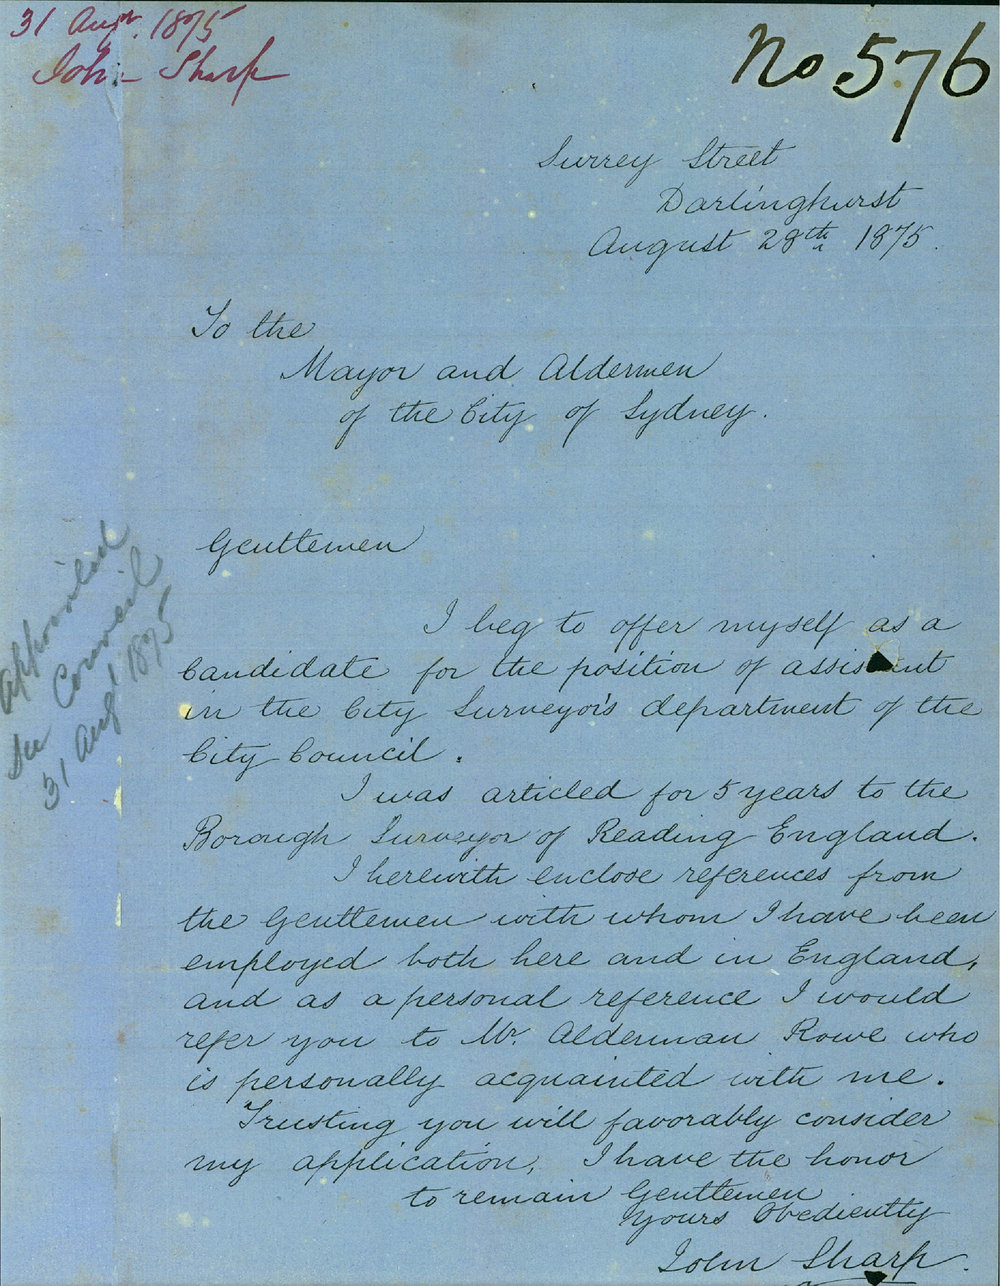 31 Augt. 1875
John Sharp
No. 576
Surrey Street
Darlinghurst
August 28th 1875.
To the
Mayor and Aldermen
of the City of Sydney.
Gentlemen
I beg to offer myself as a
Candidate for the position of assistant
in the City Surveyor's department of the
City Council.
I was articled for 5 years to the
Borough Surveyor of Reading England.
I herewith enclose references from
the Gentlemen with whom I have been
employed both here and in England,
and as a personal reference I would
refer you to Mr. Alderman Rowe who
is personally acquainted with me.
Trusting you will favorably consider
my application, I have the honor
to remain Gentlemen
Yours Obediently
John Sharp.
Appointed
In Council
31 Augt 1875